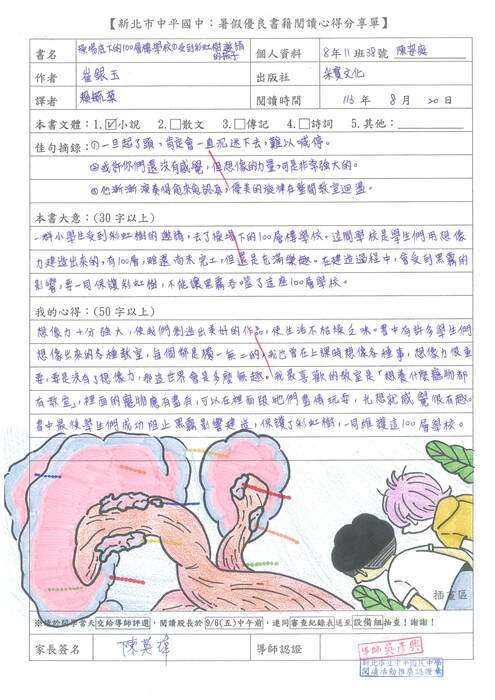 【新北市中平國中：暑假優良書籍閱讀心得分享單】
書名 操場底下的100層樓學校①受到彩虹樹邀請的孩子 個人資料 8年11班38號 陳
作者 崔銀玉 出版社 采實文化
譯者 賴毓棻 閱讀時間 113年 8月 20日
本書文體：1.☑小說 2.□散文 3.□傳記 4.□詩詞 5.其他：
佳句摘錄：①一旦起了頭，肯定會一直沉迷下去，難以喊停。
②或許你們還沒有感覺，但想像的力量，可是非常強大的。
③他漸漸演奏得愈來愈認真，優美的旋律在整間教室迴盪。
本書大意：(30字以上)
一群小學生受到彩虹樹的邀請，去了操場下的100層樓學校。這間學校是學生們用想像
力建造出來的，有100層，雖還尚未完工，但還是充滿樂趣。在建造過程中，會受到黑霧的
影響，要一同保護彩虹樹，不能讓黑霧吞噬了這座100層學校。
我的心得：(50字以上)
想像力十分強大，使我們創造出美好的作品，使生活不枯燥乏味。書中有許多學生們
想像出來的各種教室，每個都是獨一無二的，我也曾在上課時想像各種事，想像力很重
要，要是沒有了想像力，那這世界會是多麼無趣。我最喜歡的教室是「想養什麼寵物都
有教室」，裡面的寵物應有盡有，可以在裡面跟他們盡情玩耍，光想就感覺很有趣。
書中最後學生們成功阻止黑霧影響建造，保護了彩虹樹，一同維護這100層學校。
插畫區
※於開學當天交給導師評選，閱讀股長於9/6(五)中午前，連同審查紀錄表送至設備組抽查！謝謝！
家長簽名 陳英雄 導師認證
導師吳彥興
新北市立中平國民中學
閱讀活動推展認證章